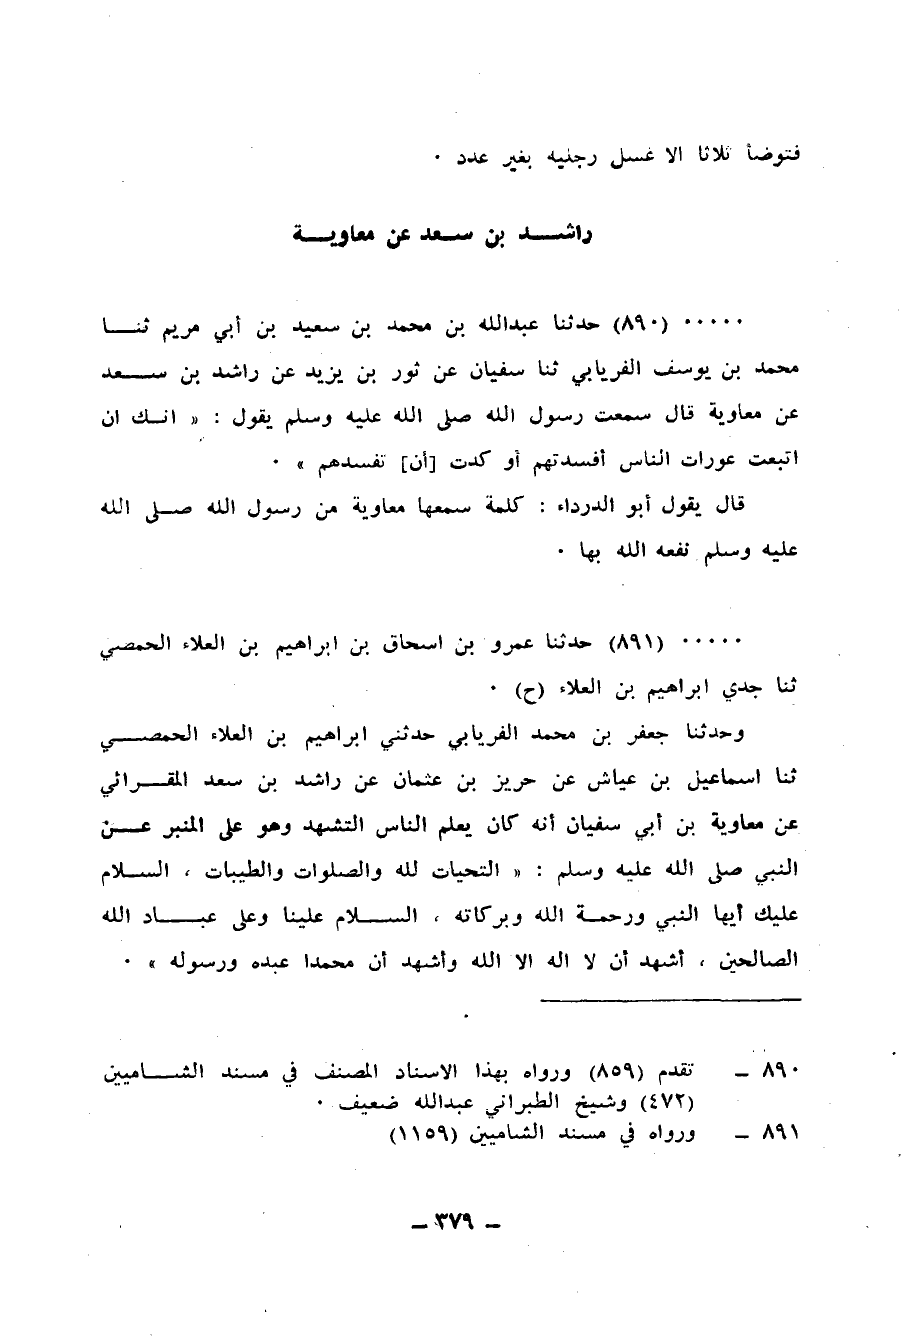 فتوضأ ثلاثا الا غسل رجليه بغير عدد ٠
راشـــد بن سـعد عن معاويـــة
٠٠٠٠٠ (٨٩٠) حدثنا عبدالله بن محمد بن سعيد بن أبي مريم ثنـــا
محمد بن يوسف الفريابي ثنا سفيان عن ثور بن يزيد عن راشد بن ســـعد
عن معاوية قال سمعت رسول الله صلى الله عليه وسلم يقول : « انـك ان
اتبعت عورات الناس أفسدتهم أو كدت [أن] تفسدهم » ٠
قال يقول أبو الدرداء : كلمة سمعها معاوية من رسول الله صـلى الله
عليه وسلم نفعه الله بها ٠
٠٠٠٠٠ (٨٩١) حدثنا عمرو بن اسحاق بن ابراهيم بن العلاء الحمصي
ثنا جدي ابراهيم بن العلاء (ح) ٠
وحدثنا جعفر بن محمد الفريابي حدثني ابراهيم بن العلاء الحمصـــي
ثنا اسماعيل بن عياش عن حريز بن عثمان عن راشد بن سعد المقـــرائي
عن معاوية بن أبي سفيان أنه كان يعلم الناس التشهد وهو على المنبر عـــن
النبي صلى الله عليه وسلم : « التحيات لله والصلوات والطيبات ، الســلام
عليك أيها النبي ورحمـة الله وبركاته ، الســـلام علينا وعلى عبـــاد الله
الصالحين ، أشهد أن لا اله الا الله وأشهد أن محمدا عبده ورسوله » ٠
٨٩٠ ــ تقدم (٨٥٩) ورواه بهذا الاسناد المصنف في مسند الشـــاميين
(٤٧٢) وشيخ الطبراني عبدالله ضعيف ٠
٨٩١ ــ ورواه في مسند الشاميين (١١٥٩)
ــ ٣٧٩ ــ